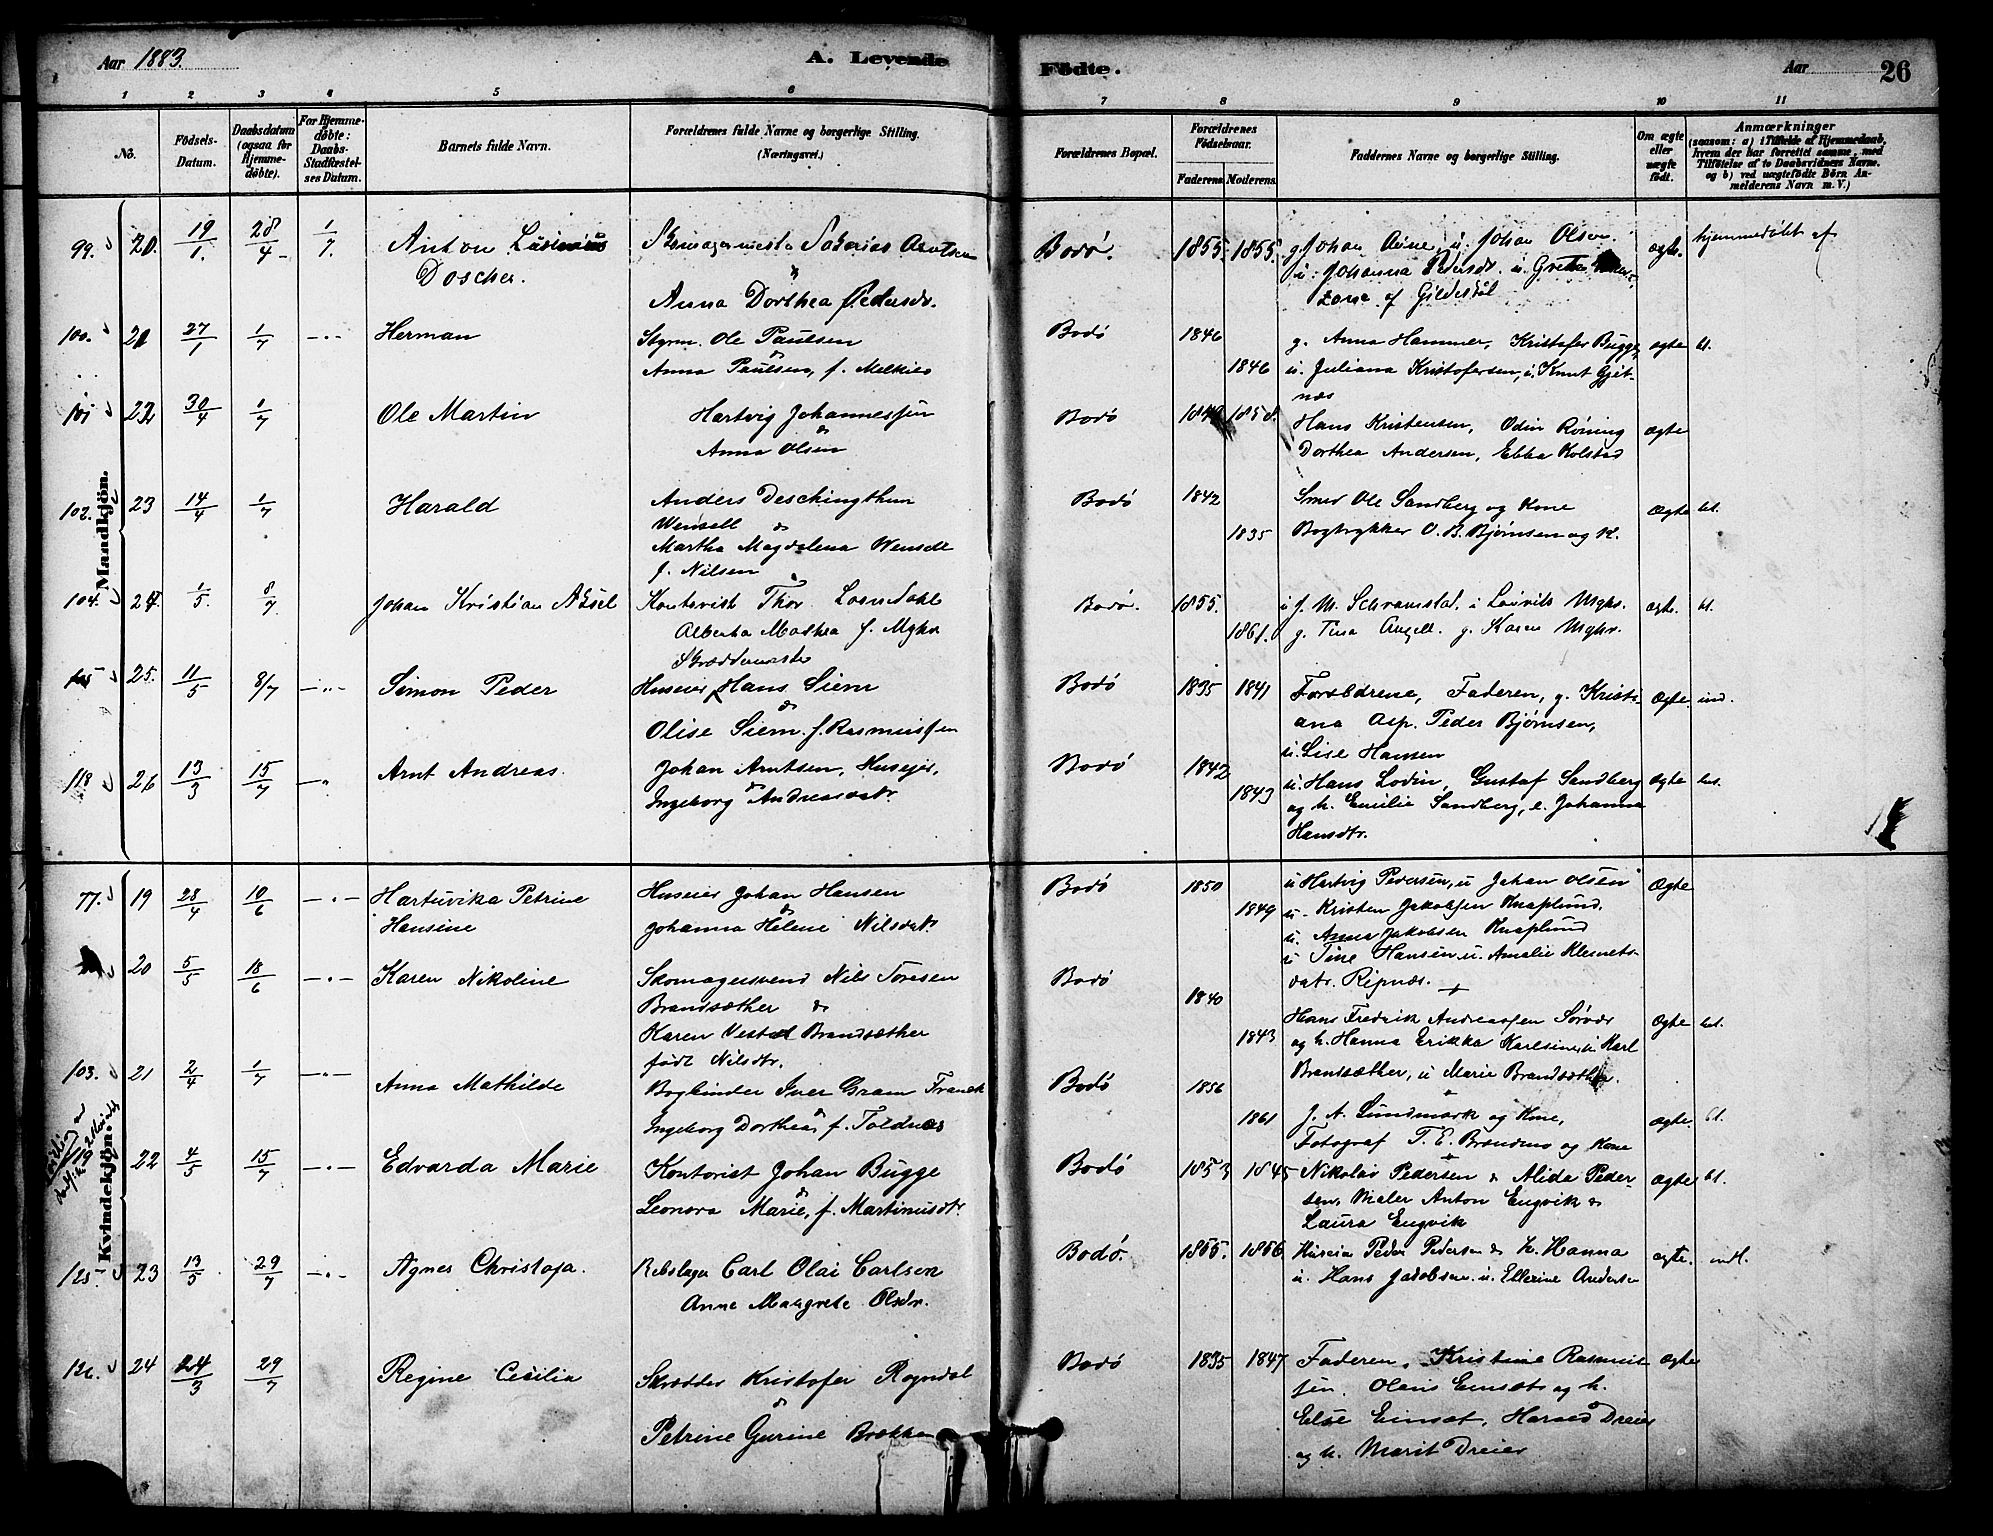 Aar 1883.
A. Levende Födte.
Aar 26
1 2 3 4 5 6 7 8 9 10 11
No.
Födsels-Datum.
Daabsdatum (ogsaa for Hjemme-döbte).
For Hjemme-döbte: Daabs-Stadfæstel-ses Datum.
Barnets fulde Navn.
Forældrenes fulde Navne og borgerlige Stilling. (Næringsvei.)
Forældrenes Bopæl.
Forældrenes Födselsaar.
Faderens. Moderens.
Faddernes Navne og borgerlige Stilling.
Om ægte eller uægte födt.
Anmærkninger
(saasom: a) i Tilfælde af Hjemmedaab, hvem der har forrettet samme, med Tilföielse af to Daabsvidners Navne. og b) ved uægtefödte Börn An-melderens Navn m. V.)
Mandkjön.
99. 20. 19/1. 28/4 1/7. Anton
Doscher. Anna Dorthea Pedersdr. Bodø. 1855. 1855. g. Johan Arine, u. Johan Olsen.
u. Johanna Pedersdr. u.
af Gildeskål ægte. hjemmedøbt af
100. 21 27/1 1/7 -"- Herman Styrm. Ole Paulsen
&
Anna Paulsen, f. Melkies Bodø 1846 1846 g. Anna Hammer, Kristofer Bugge,
u. Juliana Kristofersen, u. Knut Gjet-
næs ægte bl.
101 22 30/4 1/7 Ole Martin Hartvig Johannessen
&
Anna Olsen Bodø 1858. Hans Kristensen, Odin Røning
Dorthea Andersen, Ebba Kolstad ægte
102. 23 14/4 1/7 Harald Anders
Wensell &
Martha Magdalena Wensell
f. Nilsen Bodø 1842 1835 Smed Ole Sandberg og Kone
Bogtrykker O. B. Bjørnsen og K. Ægte bl.
104. 24. 1/5. 8/7. Johan Kristian Aksel Kontorist Thor
Alberta Mathea f. Mghr
Skræddermester Bodø. 1855. 1861. u J. M. Schramstad. u Mghr.
g. Tina Angell. g. Karen Mghr. ægte. bl.
105 25. 11/5 8/7 -"- Simon Peder Huseier Hans Siem
&
Olise Siem. f. Rasmussen Bodø 1835 1841 Forældrene, Faderen, g. Kristi-
ana Asp. Peder Bjørnsen,
u. Lise Hansen Ægte. ind.
118 26 13/3 15/7 -" Arnt Andreas. Johan Arntsen, Husejer,
&
Ingeborg Andreasdatr. Bodø 1842 1843 u. Hans Lodin, Gustaf Sandberg
og h. Emilie Sandberg, e. Johanna
Hansdtr. Ægte bl.
Kvindekjön.
77. 19 28/4 10/6 -"- Hartuvika Petrine
Hansine Huseier Johan Hansen
&
Johanna Helene Nilsdatr. Bodø 1850 1849 u Hartvig Pedersen, u Johan Olsen
u. Kristen Jakobsen Knaplund.
u. Anna Jakobsen Knaplund
u Tine Hansen u. Amalie
datr. Ripnæs. Ægte
20 5/5 18/6 -"- Karen Nikoline Skomagersvend Nils Toresen
Brandsæther &
Karen Brandsæther
født Nilsdtr. Bodø 1840 1843 Hans Fredrik Andreassen
og h. Hanna Erikka Karlsine, u Karl
Brandsæther, u Marie Brandsæther. Ægte bl.
103. 21 2/4 1/7 -"- Anna Mathilde Bogbinder Iver Gram Franck
&
Ingeborg Dorthea, f. Toldnæs Bodø 1856 1861 J. A. Lundmark og Kone,
Fotograf T. E. Brandmo og Kone ægte bl.
22 4/5 15/7 -"- Edvarda Marie Kontorist Johan Bugge
&
Leonora Marie, f. Martinusdtr. Bodø 1853 1845 Nikolai Pedersen & Alida Peder-
sen, Maler Anton Engvik &
Laura Engvik ægte bl.
125 23 13/5 29/7 -"- Agnes Christofa. Rebslager Carl Olai Carlsen
Anne Maagrete Olsdr. Bodø. 1855. 1856 Huseier Peder Pedersen & h. Hanna
u. Hans Jakobsen. u. Ellerine Andersen ægte. indl.
126. 24 24/3 29/7 Regine Cecilia Skrædder Kristofer Rogndal
&
Petrine Gurine Brækken Bodø 1835 1847 Faderen, Kristine Rasmus-
sen. Olaus Eimsæt og h.
Else Eimsæt, Harald Dreier
og h. Marit Dreier ægte